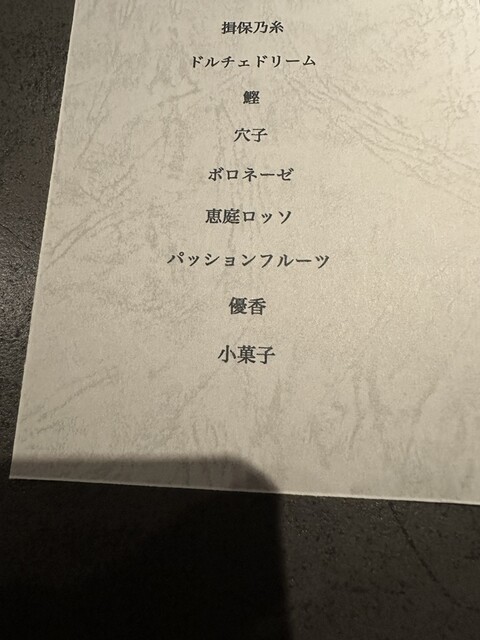 揖保乃糸
ドルチェドリーム
鰹
穴子
ボロネーゼ
恵庭ロッソ
パッションフルーツ
優香
小菓子